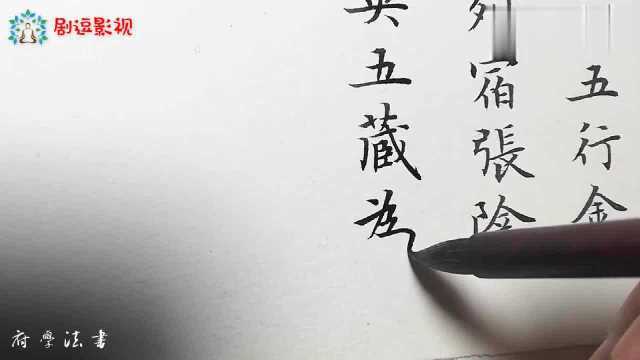 剧逗影视
五行金
宿張
五藏
書法學府